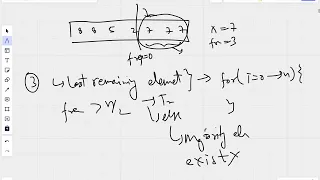 2
8 8 5 2 7 7 7
x = 7
fr = 3
freq=0
③ ↳ last remaining element → for(i=0→n){
fre > n/2 → Tr }
↳ else
↳ majority ele
exist X